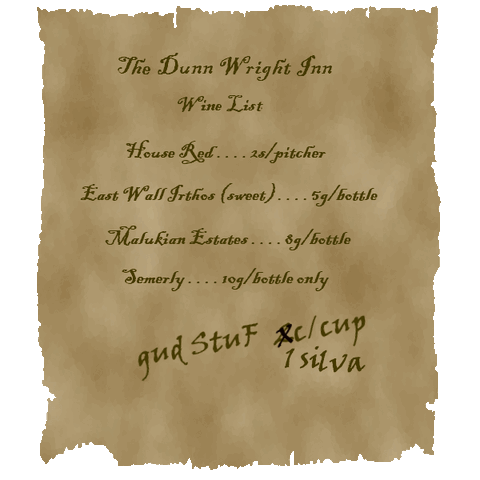 The Dunn Wright Inn
Wine List
House Red . . . . 2s/pitcher
East Wall Irthos (sweet) . . . . 5g/bottle
Malukian Estates . . . . 8g/bottle
Semerly . . . . 10g/bottle only
gud StuF c/cup
1 silva